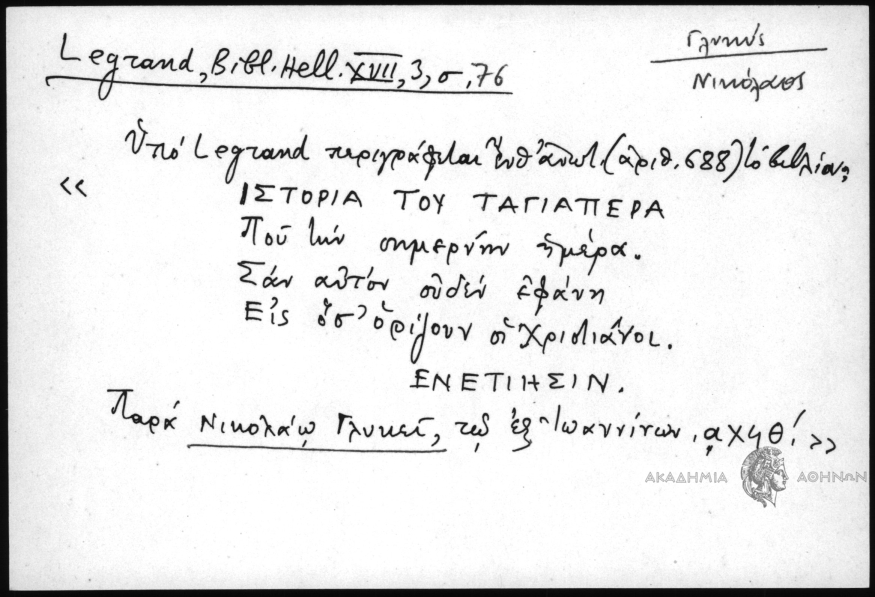 Legrand, Bibl. Hell. XVII, 3, σ, 76
Γλυκύς
Νικόλαος
Ὑπό Legrand περιγράφεται (ἀριθ. 688) τό βιβλίον;
«
ΙΣΤΟΡΙΑ ΤΟΥ ΤΑΓΙΑΠΕΡΑ
Ποῦ τήν σημερνήν ἡμέρα.
Σάν αὐτόν οὐδέν ἐφάνη
Εἰς ὅσ' ὁρίζουν οἱ Χριστιάνοι.
ΕΝΕΤΙΗΣΙΝ.
Παρά Νικολάῳ Γλυκεῖ, τῷ ἐξ Ἰωαννίνων. ͵αχηθ! »
ΑΚΑΔΗΜΙΑ ΑΘΗΝΩΝ